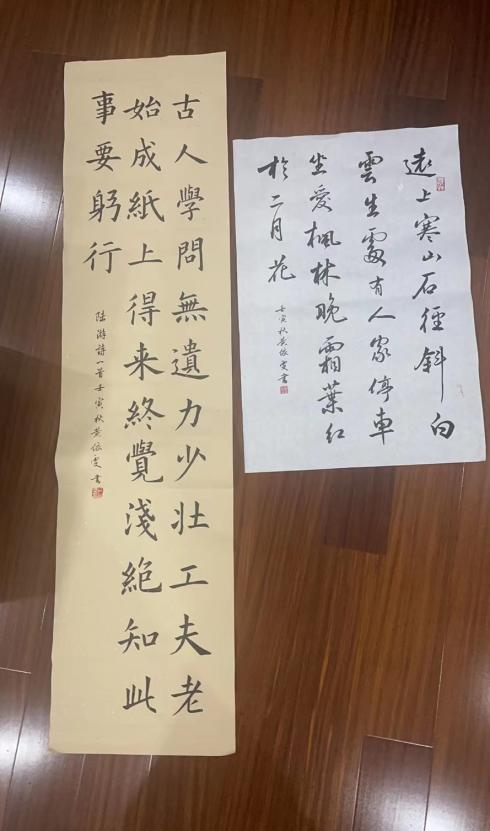 遠上寒山石徑斜白
雲生處有人家停車
坐愛楓林晚霜葉紅
於二月花
壬寅秋黄依雯書
古人學問無遺力少壮工夫老
始成紙上得来終覺淺絶知此
事要躬行
陸游詩一首壬寅秋黄依雯書